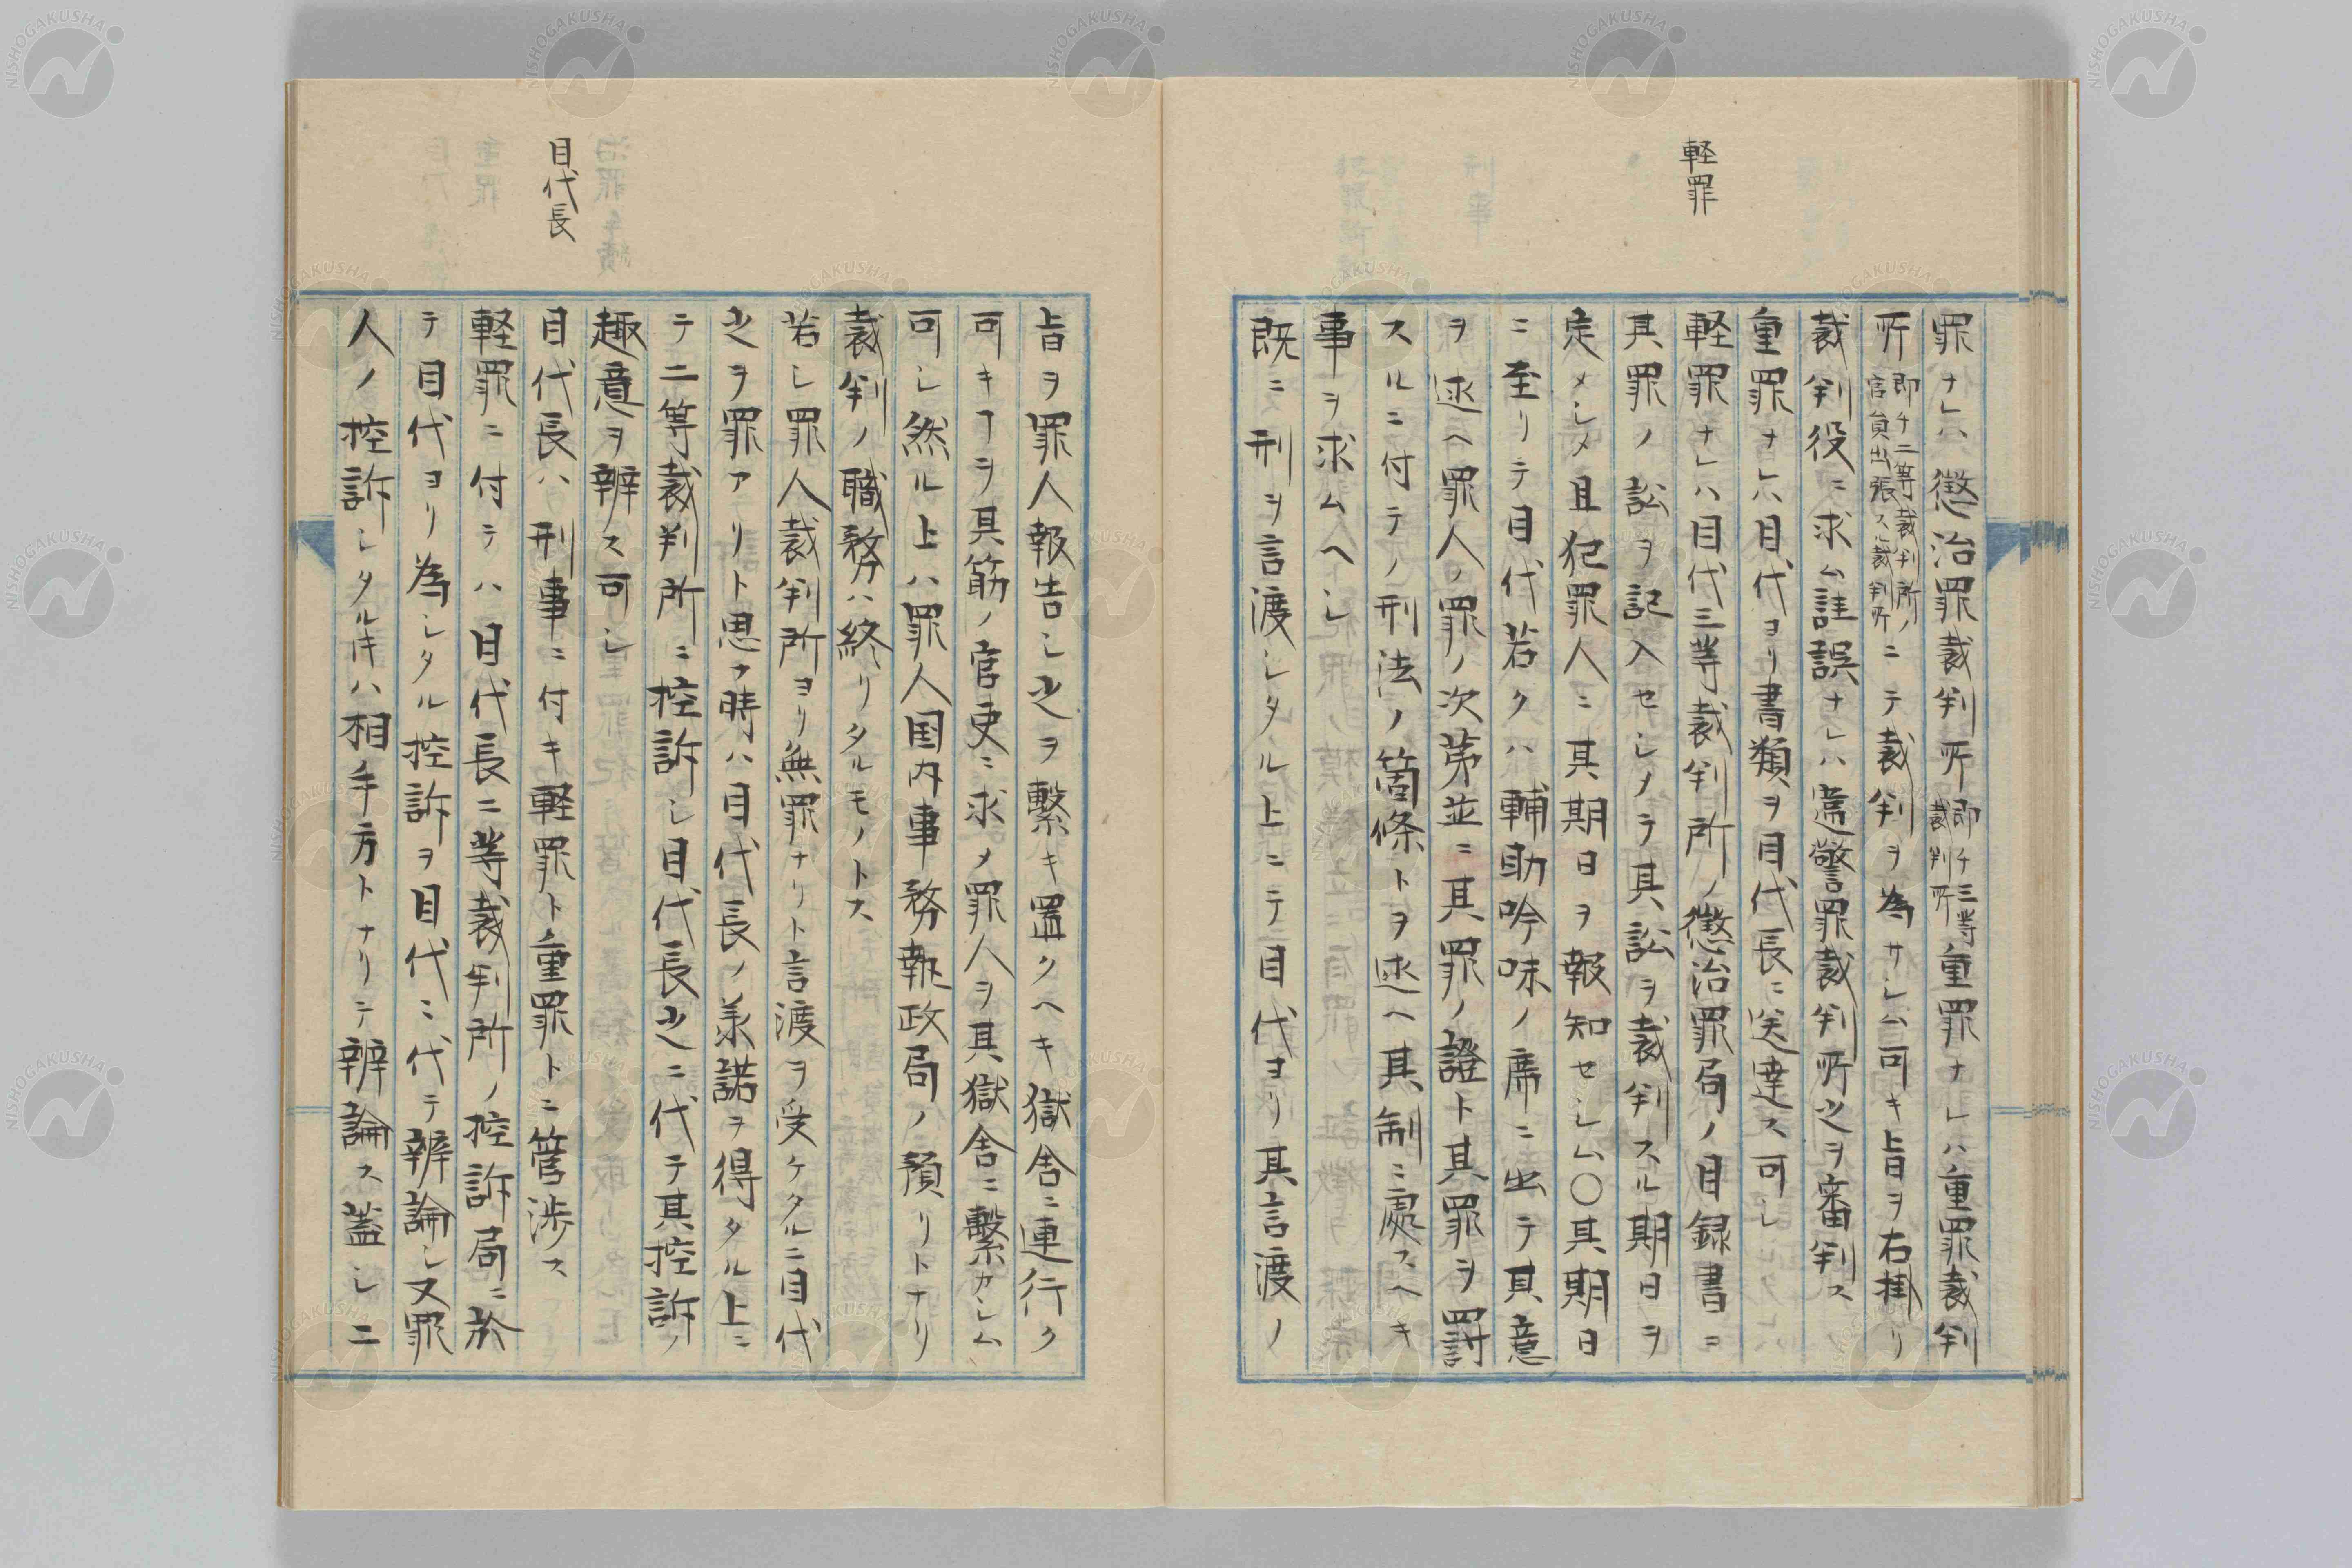 軽罪
罪ナレハ懲治罪裁判所即チ三等裁判所重罪ナレハ重罪裁判
所即チ二等裁判所ノ官員出張スル裁判所ニテ裁判ヲ為サシム可キ旨ヲ右掛リ
裁判役ニ求ム註誤ナレハ違警罪裁判所之ヲ審判ス
重罪ナレハ目代ヨリ書類ヲ目代長ニ送達ス可シ
軽罪ナレハ目代三等裁判所ノ懲治罪局ノ目録書ニ
其罪ノ訟ヲ記入セシメテ其訟ヲ裁判スル期日ヲ
定メシメ且犯罪人ニ其期日ヲ報知セシム〇其期日
ニ至リテ目代若クハ輔助吟味ノ席ニ出テ其意
ヲ述ヘ罪人ノ罪ノ次第並ニ其罪ノ證ト其罪ヲ罰
スルニ付テノ刑法ノ箇條トヲ述ヘ其制ニ處スヘキ
事ヲ求ムヘシ
既ニ刑ヲ言渡シタル上ニテ目代ヨリ其言渡ノ
目代長
旨ヲ罪人報告シ之ヲ繋キ置クヘキ獄舎ニ連行ク
可キヿヲ其筋ノ官吏ニ求メ罪人ヲ其獄舎ニ繋カシム
可シ然ル上ハ罪人国内事務執政局ノ預リトナリ
裁判ノ職務ハ終リタルモノトス
若シ罪人裁判所ヨリ無罪ナリト言渡ヲ受ケタルニ目代
之ヲ罪アリト思フ時ハ目代長ノ承諾ヲ得タル上ニ
テ二等裁判所ニ控訴シ目代長之ニ代テ其控訴ノ
趣意ヲ辨ス可シ
目代長ハ刑事ニ付キ軽罪ト重罪トニ管渉ス
軽罪ニ付テハ目代長二等裁判所ノ控訴局ニ於
テ目代ヨリ為シタル控訴ヲ目代ニ代テ辨論シ又罪
人ノ控訴シタルキハ相手方トナリテ辨論ス蓋シ二
NISHOGAKUSHA